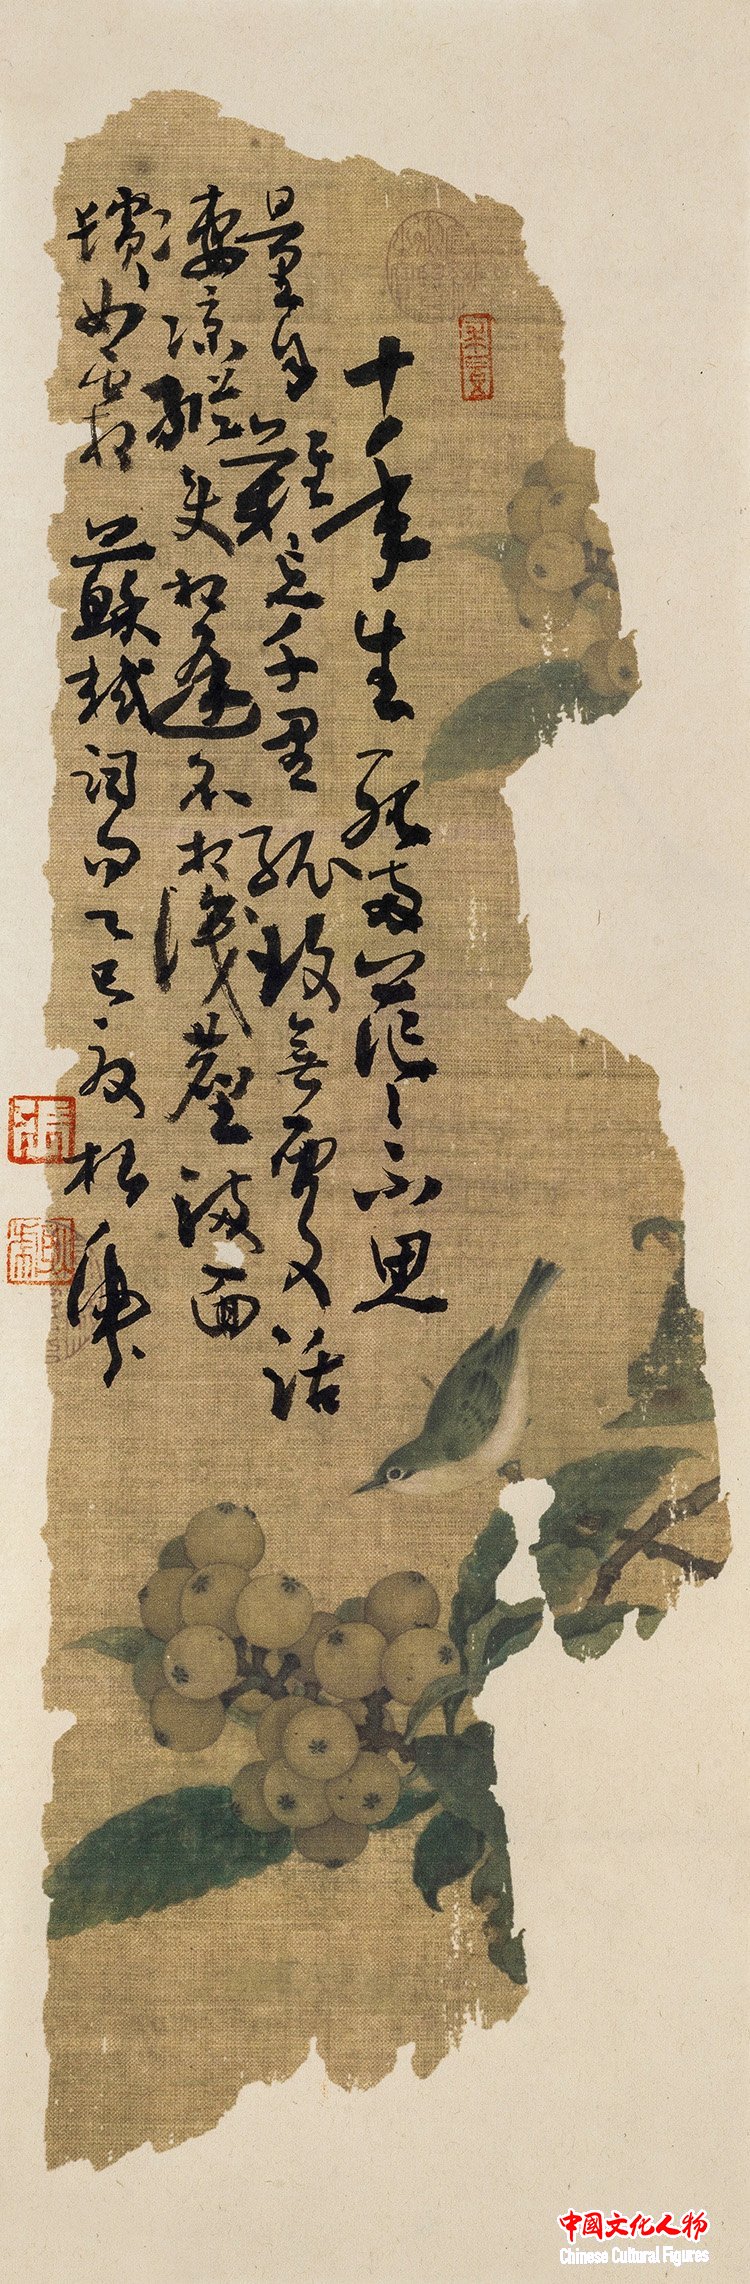 十年生死兩茫〻不思
量自難忘千里孤坟無處话
凄凉縱使相逢不相識塵满面
鬓如霜 蘇軾词句乙巳
張
中国文化人物
Chinese Cultural Figures